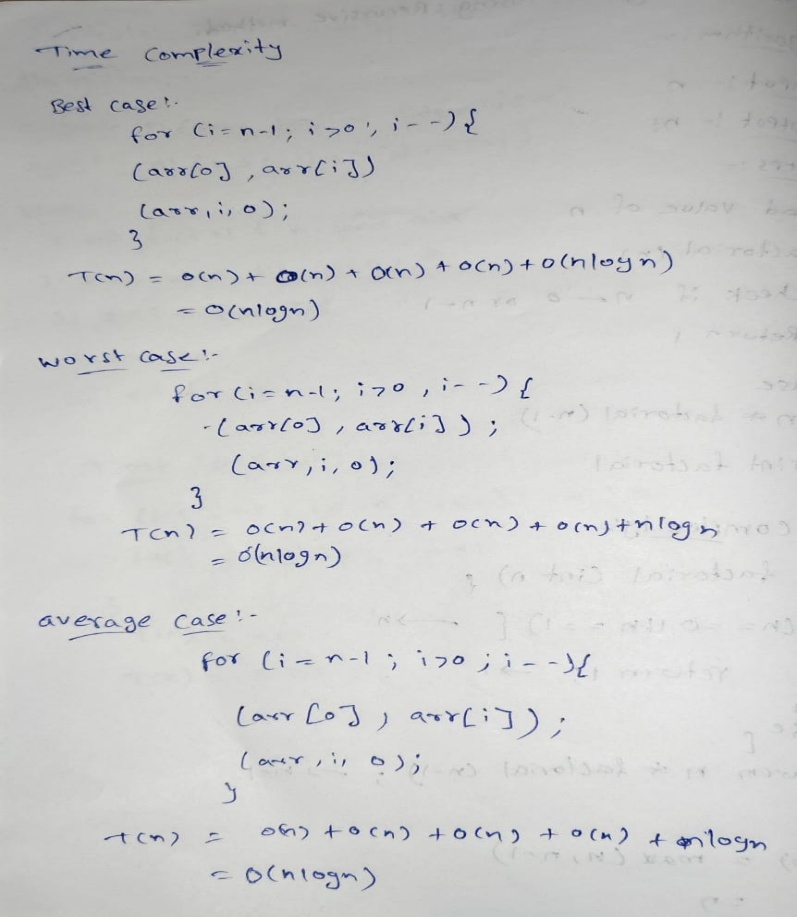 Time Complexity
Best Case:-
for (i=n-1; i>0; i--){
(arr[0], arr[i])
(arr, i, 0);
}
T(n) = O(n) + O(n) + O(n) + O(n) + O(nlogn)
= O(nlogn)
worst case:-
for (i=n-1; i>0, i--){
(arr[0], arr[i]);
(arr, i, 0);
}
T(n) = O(n) + O(n) + O(n) + O(n) + nlogn
= O(nlogn)
average case:-
for (i=n-1; i>0; i--){
(arr[0], arr[i]);
(arr, i, 0);
}
T(n) = O(n) + O(n) + O(n) + O(n) + nlogn
= O(nlogn)